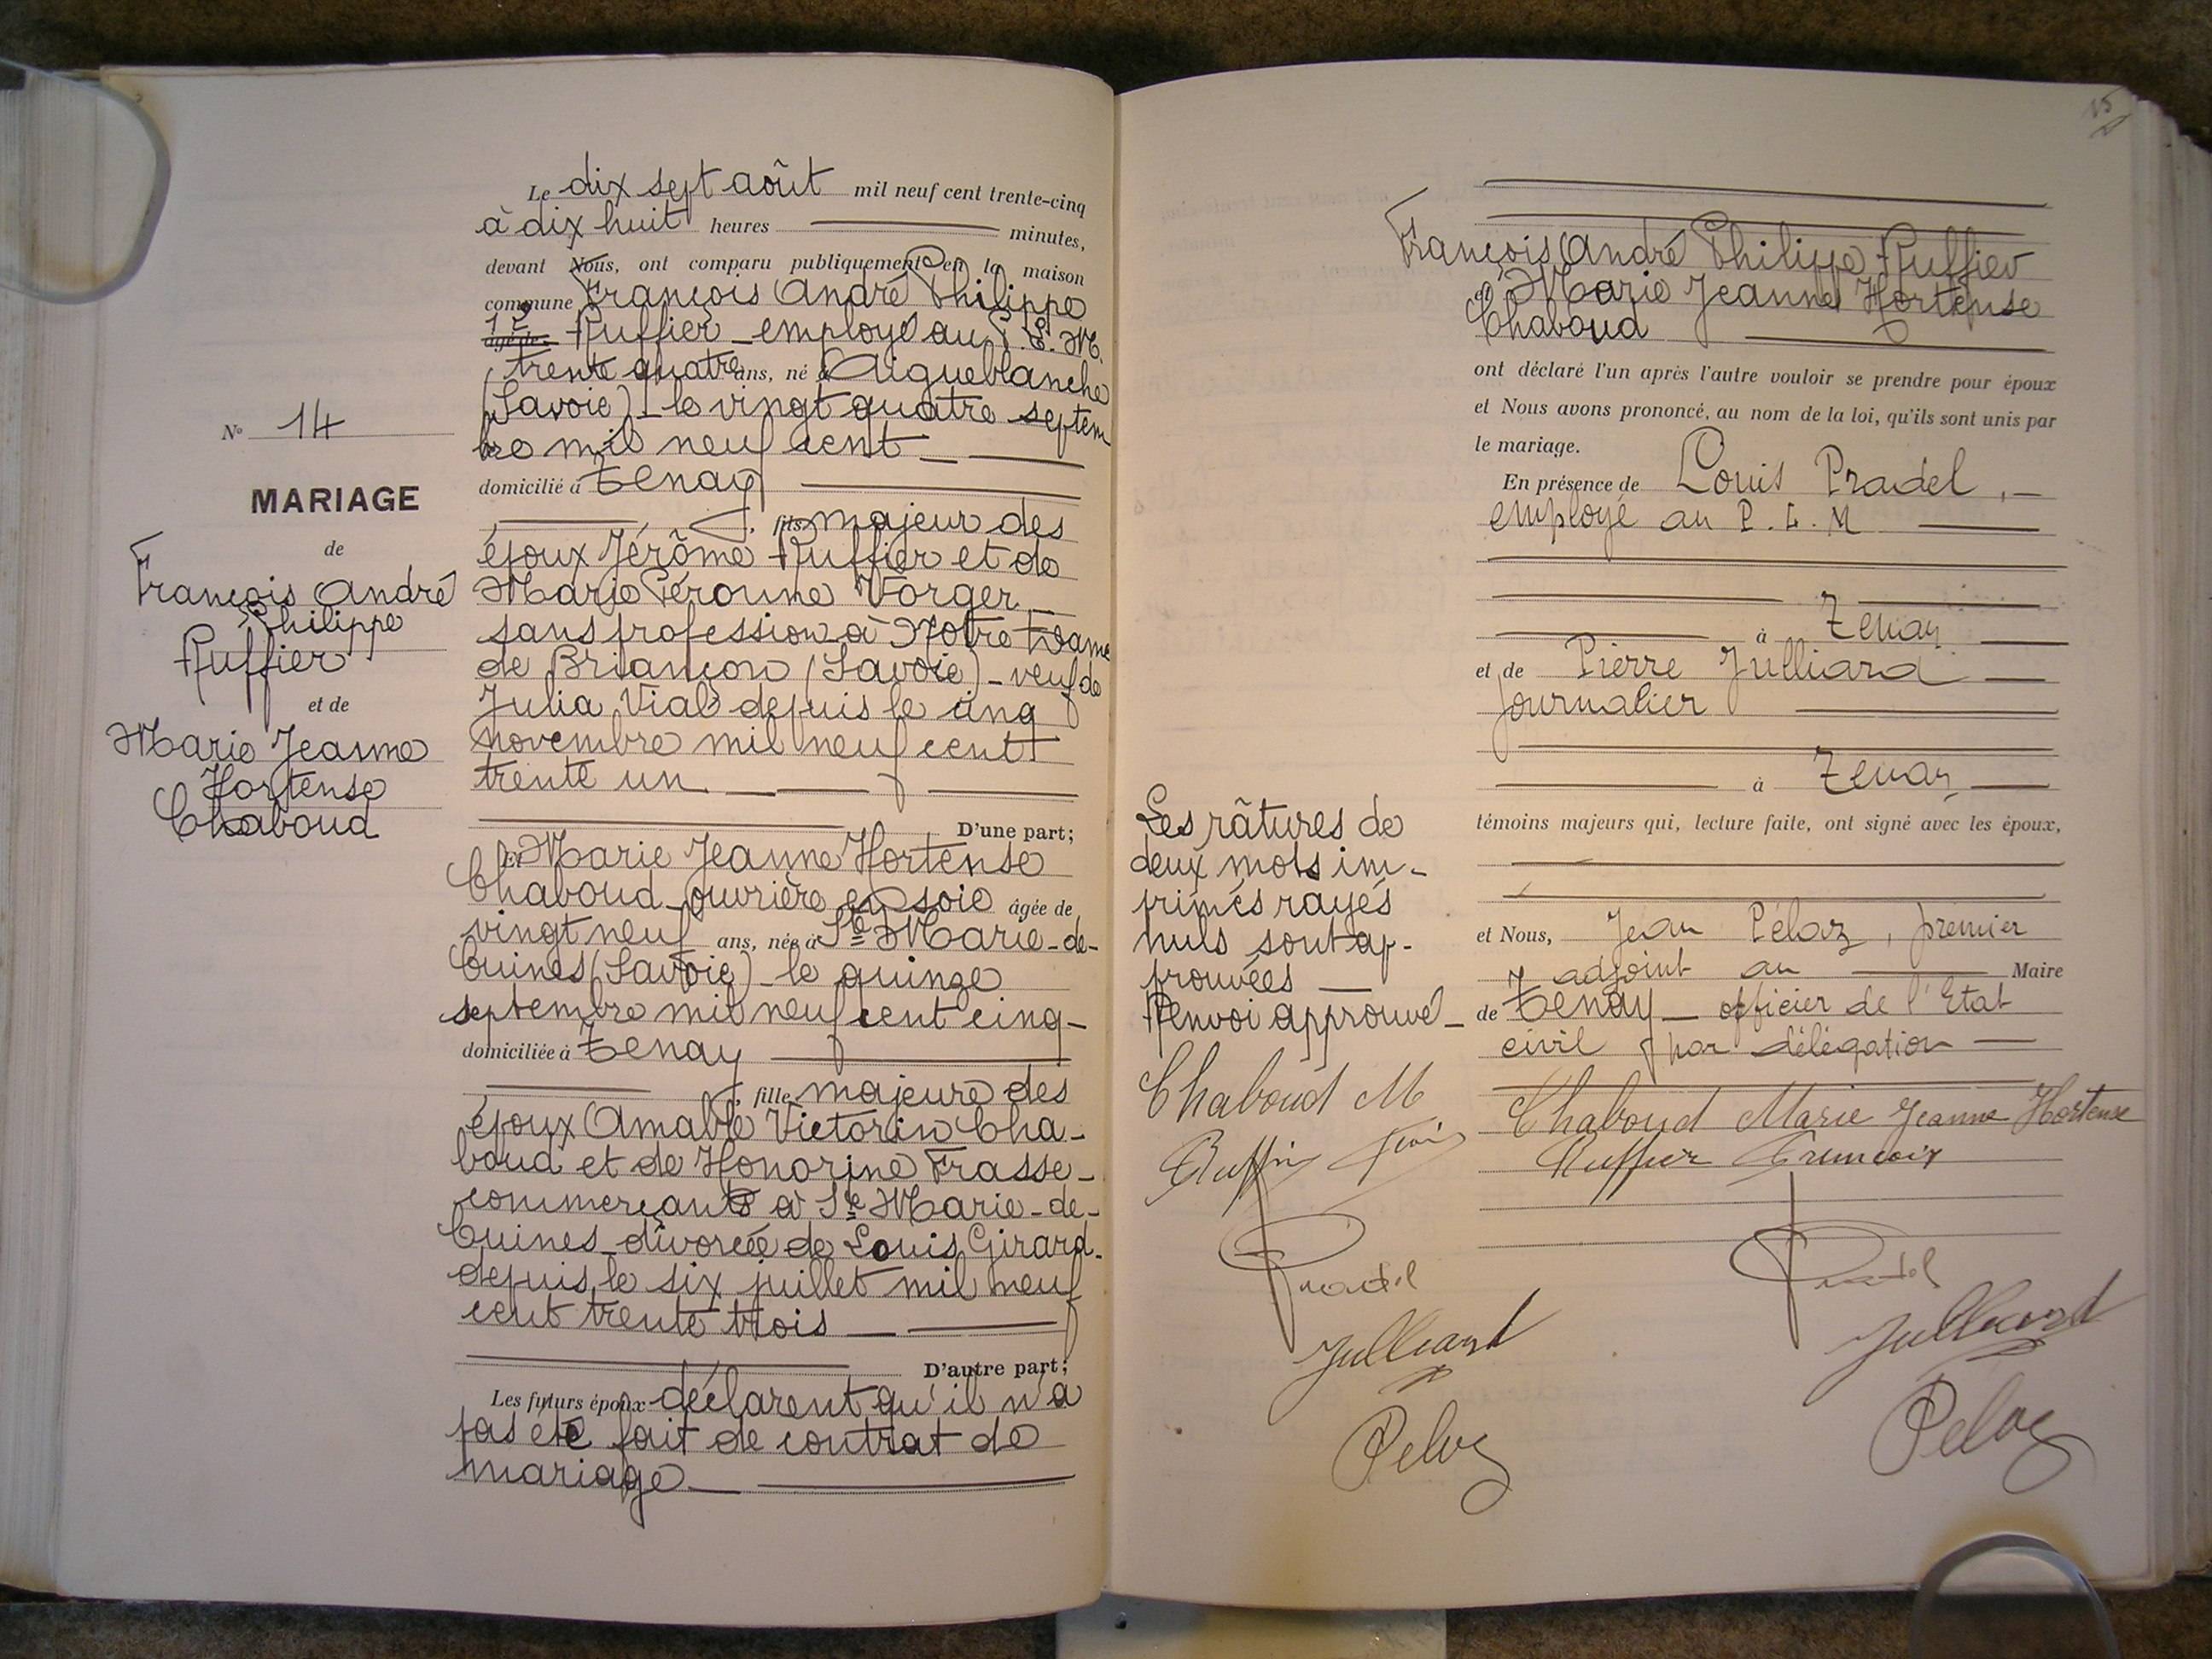 Le dix sept août mil neuf cent trente-cinq
à dix huit heures minutes,
devant Nous, ont comparu publiquement en la maison
commune François André Philippe
1º âgé de Ruffier _ employé au P.L.M.
trente quatre ans, né à Aigueblanche
(Savoie) _ le vingt quatre septem
bre mil neuf cent _
domicilié à Tenay
fils majeur des
époux Jérôme Ruffier et de
Marie Péronne Vorger _
sans profession à Notre Dame
de Briançon (Savoie) _ veuf de
Julia Vial depuis le cinq
novembre mil neuf cent
trente un _
D'une part;
Et Marie Jeanne Hortense
Chaboud _ ouvrière en soie âgée de
vingt neuf ans, née à Ste Marie-de-
Cuines (Savoie) _ le quinze
septembre mil neuf cent cinq _
domiciliée à Tenay
fille majeure des
époux Amable Victorin Cha-
boud et de Honorine Frasse _
commerçants à Ste Marie-de-
Cuines _ divorcée de Louis Girard _
depuis le six juillet mil neuf
cent trente trois _
D'autre part;
Les futurs époux déclarent qu'il n'a
pas été fait de contrat de
mariage _
Nº 14
MARIAGE
de
François André
Philippe
Ruffier
et de
Marie Jeanne
Hortense
Chaboud
15
François André Philippe Ruffier
et Marie Jeanne Hortense
Chaboud
ont déclaré l'un après l'autre vouloir se prendre pour époux
et Nous avons prononcé, au nom de la loi, qu'ils sont unis par
le mariage.
En présence de Louis Pradel, _
employé au P.L.M
à Tenay
et de Pierre Julliard
journalier
à Tenay
témoins majeurs qui, lecture faite, ont signé avec les époux,
et Nous, Jean Pélaz, premier
adjoint au Maire
de Tenay _ officier de l'Etat
civil par délégation _
Chaboud Marie Jeanne Hortense
Ruffier François
Pradel
Julliard
Pelaz
Les râtures de
deux mots im-
primés rayés
nuls sont ap-
prouvées _
Renvoi approuvé _
Chaboud M
Ruffier
Pradel
Julliard
Pelaz